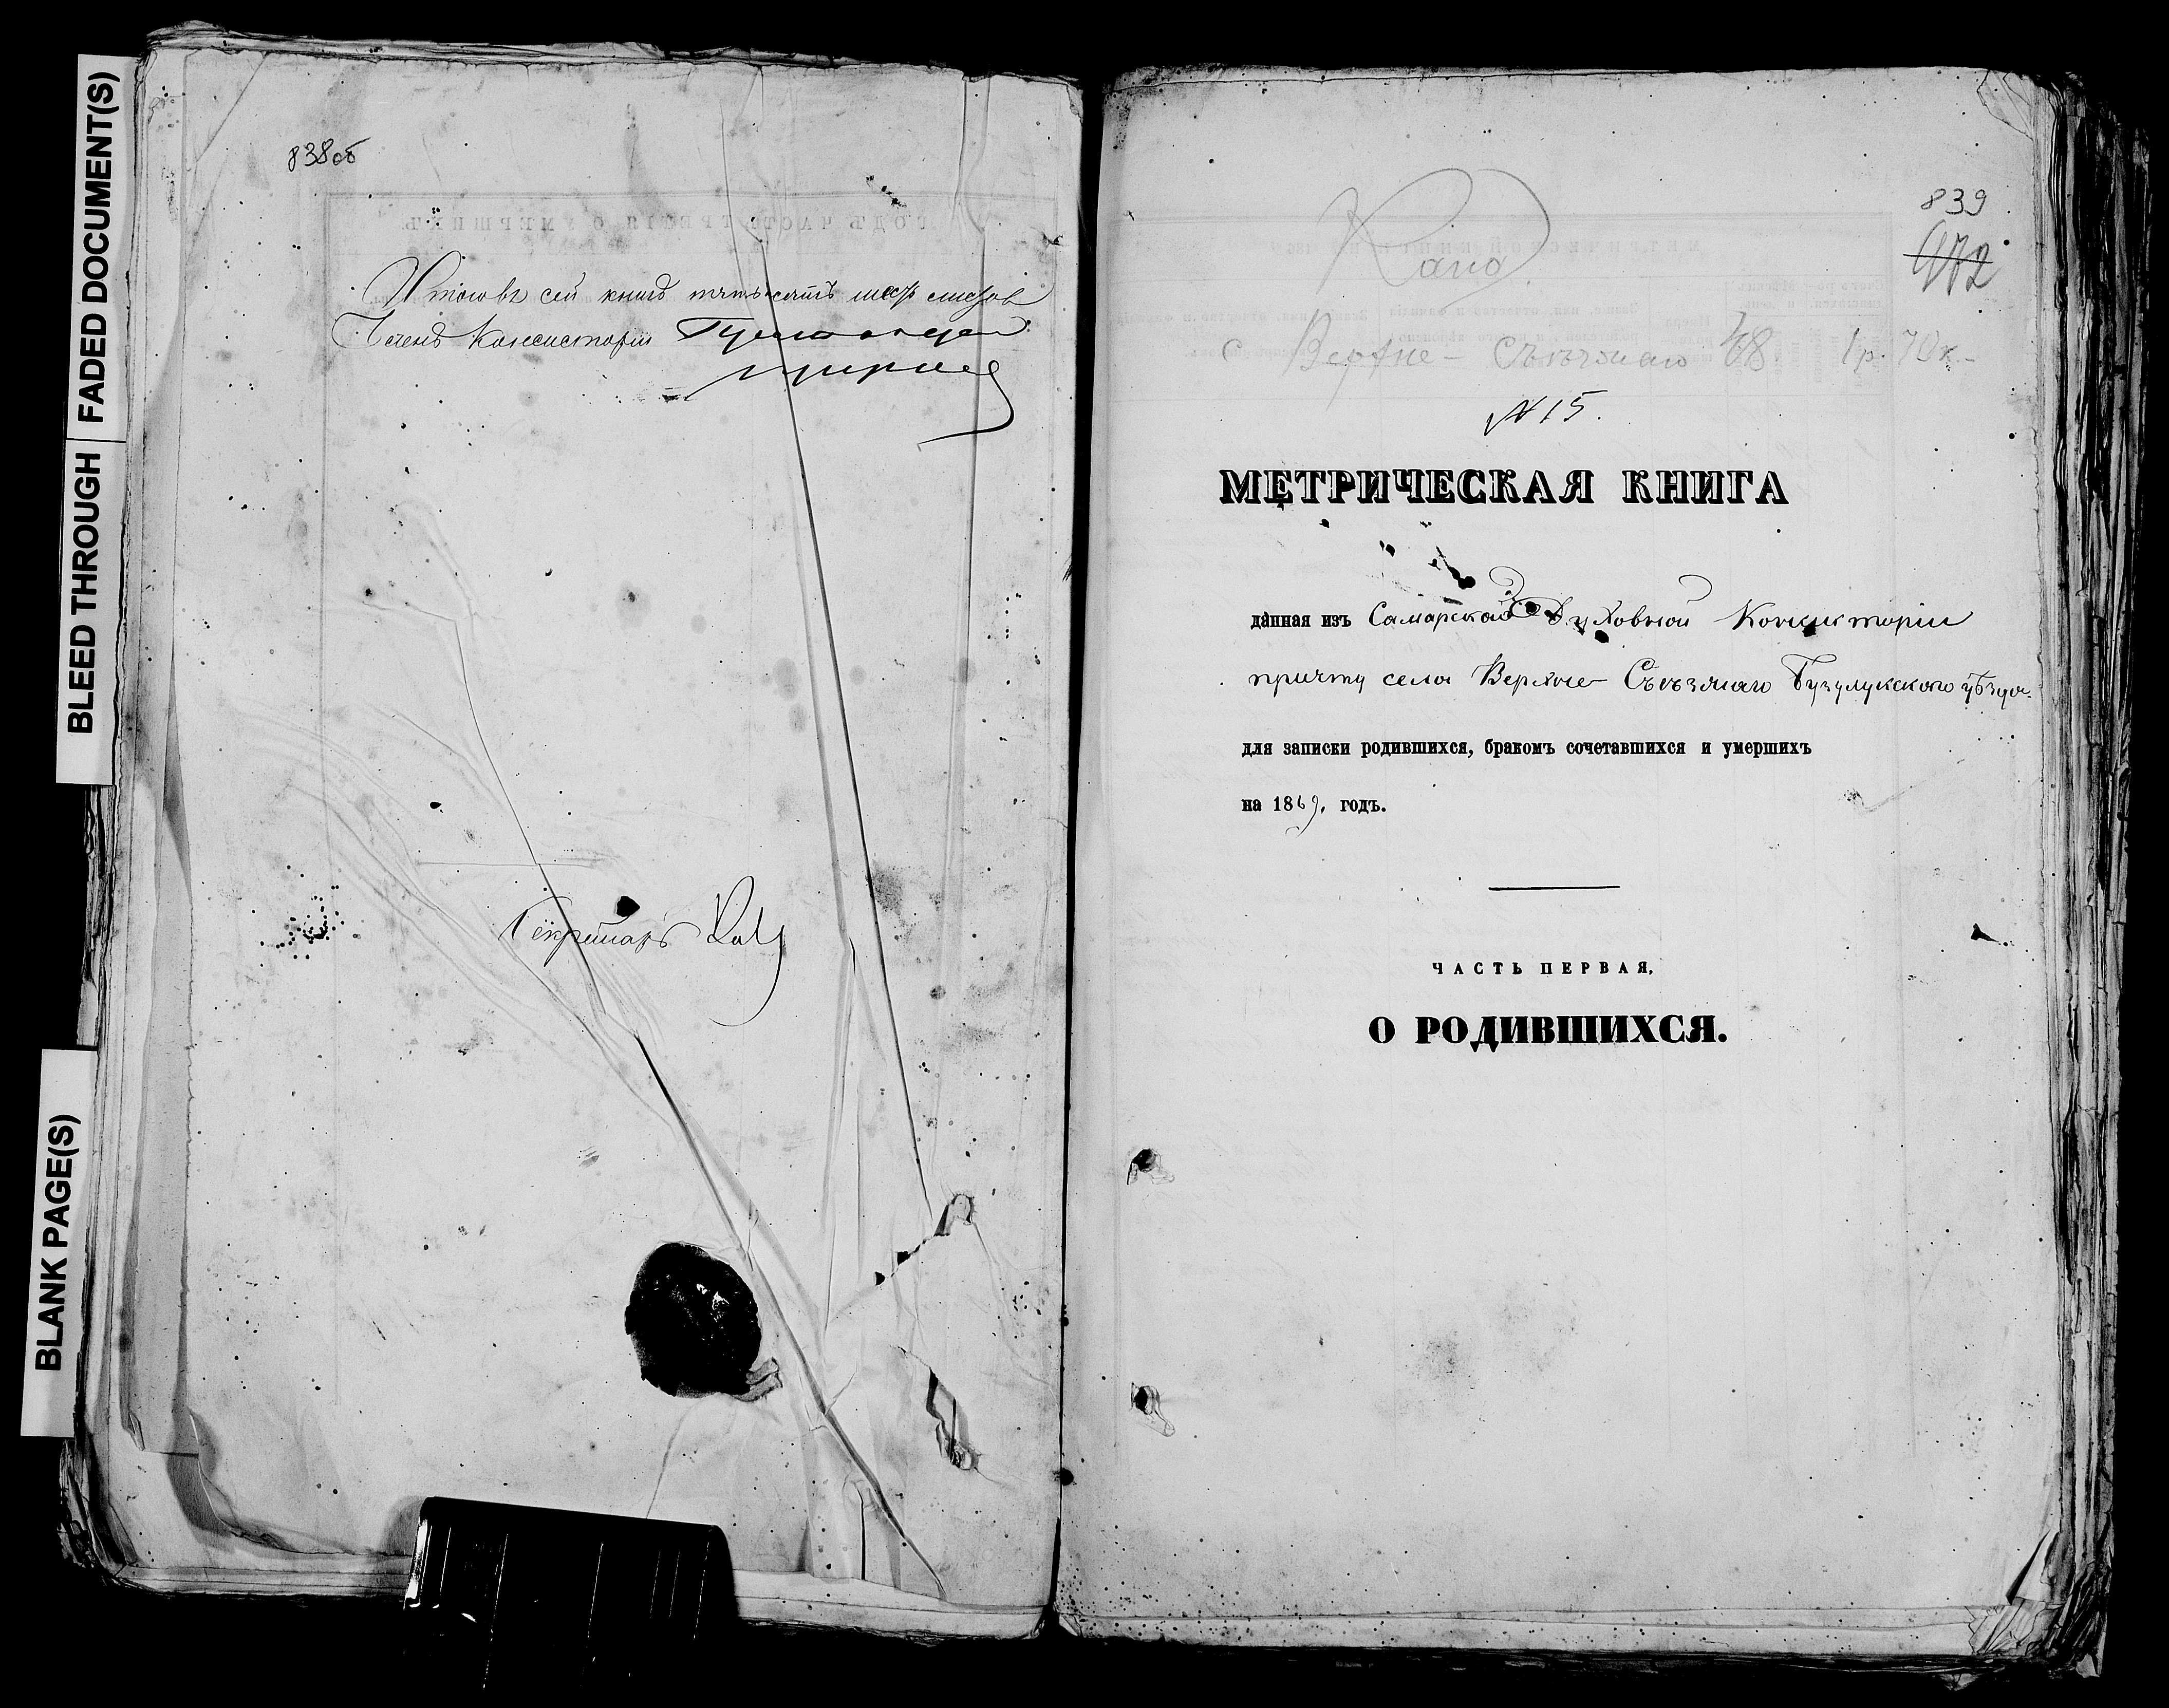 FADED DOCUMENT(S)
BLEED THROUGH
BLANK PAGE(S)
838об
Итого въ сей книгѣ пятьдесятъ листовъ
Членъ Консисторіи
Секретарь
839
472
с Верхне-Съезжаго 48. 1р. 70к.
№ 15.
МЕТРИЧЕСКАЯ КНИГА
данная изъ Самарской Духовной Консисторіи
причту села Верхне-Съезжаго Бузулукскаго уѣзда
для записки родившихся, бракомъ сочетавшихся и умершихъ
на 1869. годъ.
ЧАСТЬ ПЕРВАЯ,
О РОДИВШИХСЯ.